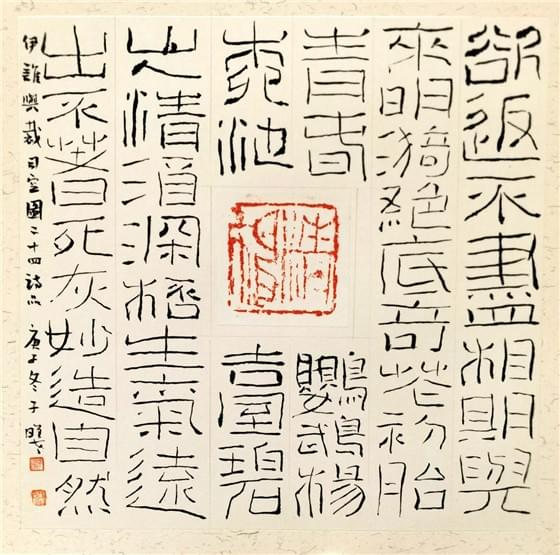 欲返不盡相期與
來明漪絕底奇花初胎
青春
鸚鵡楊
柳池
臺碧
山人清酒深桮生氣遠
出不著死灰妙造自然
伊誰與裁司空圖二十四詩品 庚子冬子